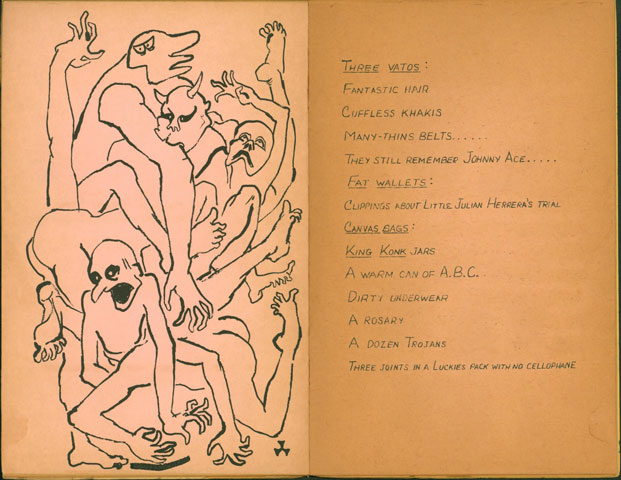 THREE VATOS:
FANTASTIC HAIR
CUFFLESS KHAKIS
MANY-THINS BELTS......
THEY STILL REMEMBER JOHNNY ACE.....
FAT WALLETS:
CLIPPINGS ABOUT LITTLE JULIAN HERRERA'S TRIAL
CANVAS BAGS:
KING KONK JARS
A WARM CAN OF A.B.C..
DIRTY UNDERWEAR
A ROSARY
A DOZEN TROJANS
THREE JOINTS IN A LUCKIES PACK WITH NO CELLOPHANE